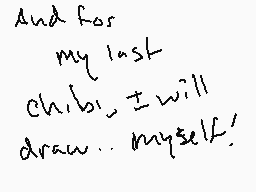 And for
my last
chibi, I will
draw.. myself!